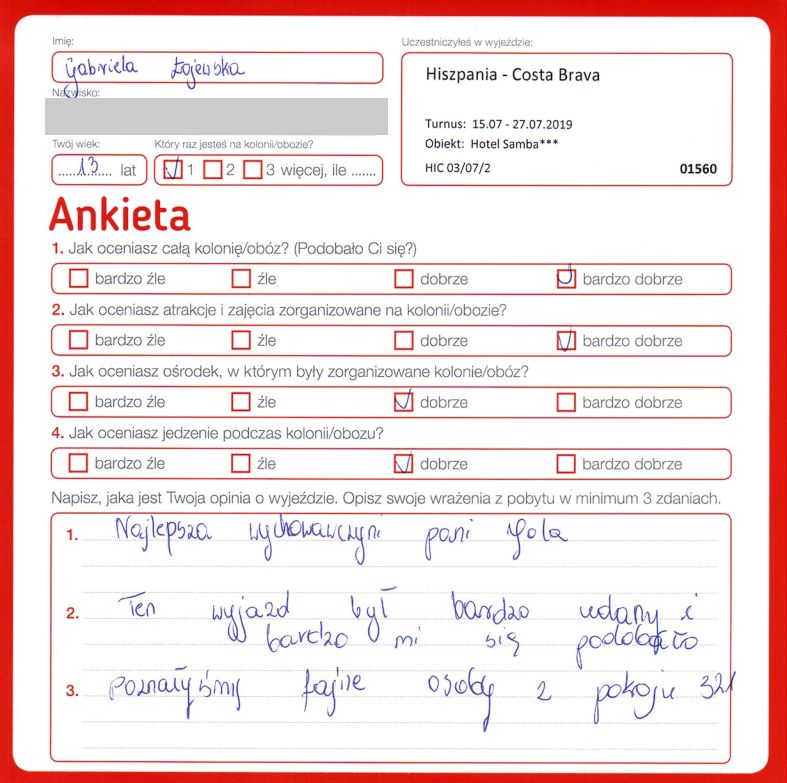 Imię:
Gabriela Łojewska
Nazwisko:
Twój wiek:
13 lat
Który raz jesteś na kolonii/obozie?
1 2 3 więcej, ile .......
Uczestniczyłeś w wyjeździe:
Hiszpania - Costa Brava
Turnus: 15.07 - 27.07.2019
Obiekt: Hotel Samba***
HIC 03/07/2 01560
Ankieta
1. Jak oceniasz całą kolonię/obóz? (Podobało Ci się?)
bardzo źle źle dobrze bardzo dobrze
2. Jak oceniasz atrakcje i zajęcia zorganizowane na kolonii/obozie?
bardzo źle źle dobrze bardzo dobrze
3. Jak oceniasz ośrodek, w którym były zorganizowane kolonie/obóz?
bardzo źle źle dobrze bardzo dobrze
4. Jak oceniasz jedzenie podczas kolonii/obozu?
bardzo źle źle dobrze bardzo dobrze
Napisz, jaka jest Twoja opinia o wyjeździe. Opisz swoje wrażenia z pobytu w minimum 3 zdaniach.
1. Najlepsza wychowawczyni pani Jola
2. Ten wyjazd był bardzo udany i
bardzo mi się podobało
3. poznałyśmy fajne osoby z pokoju 321